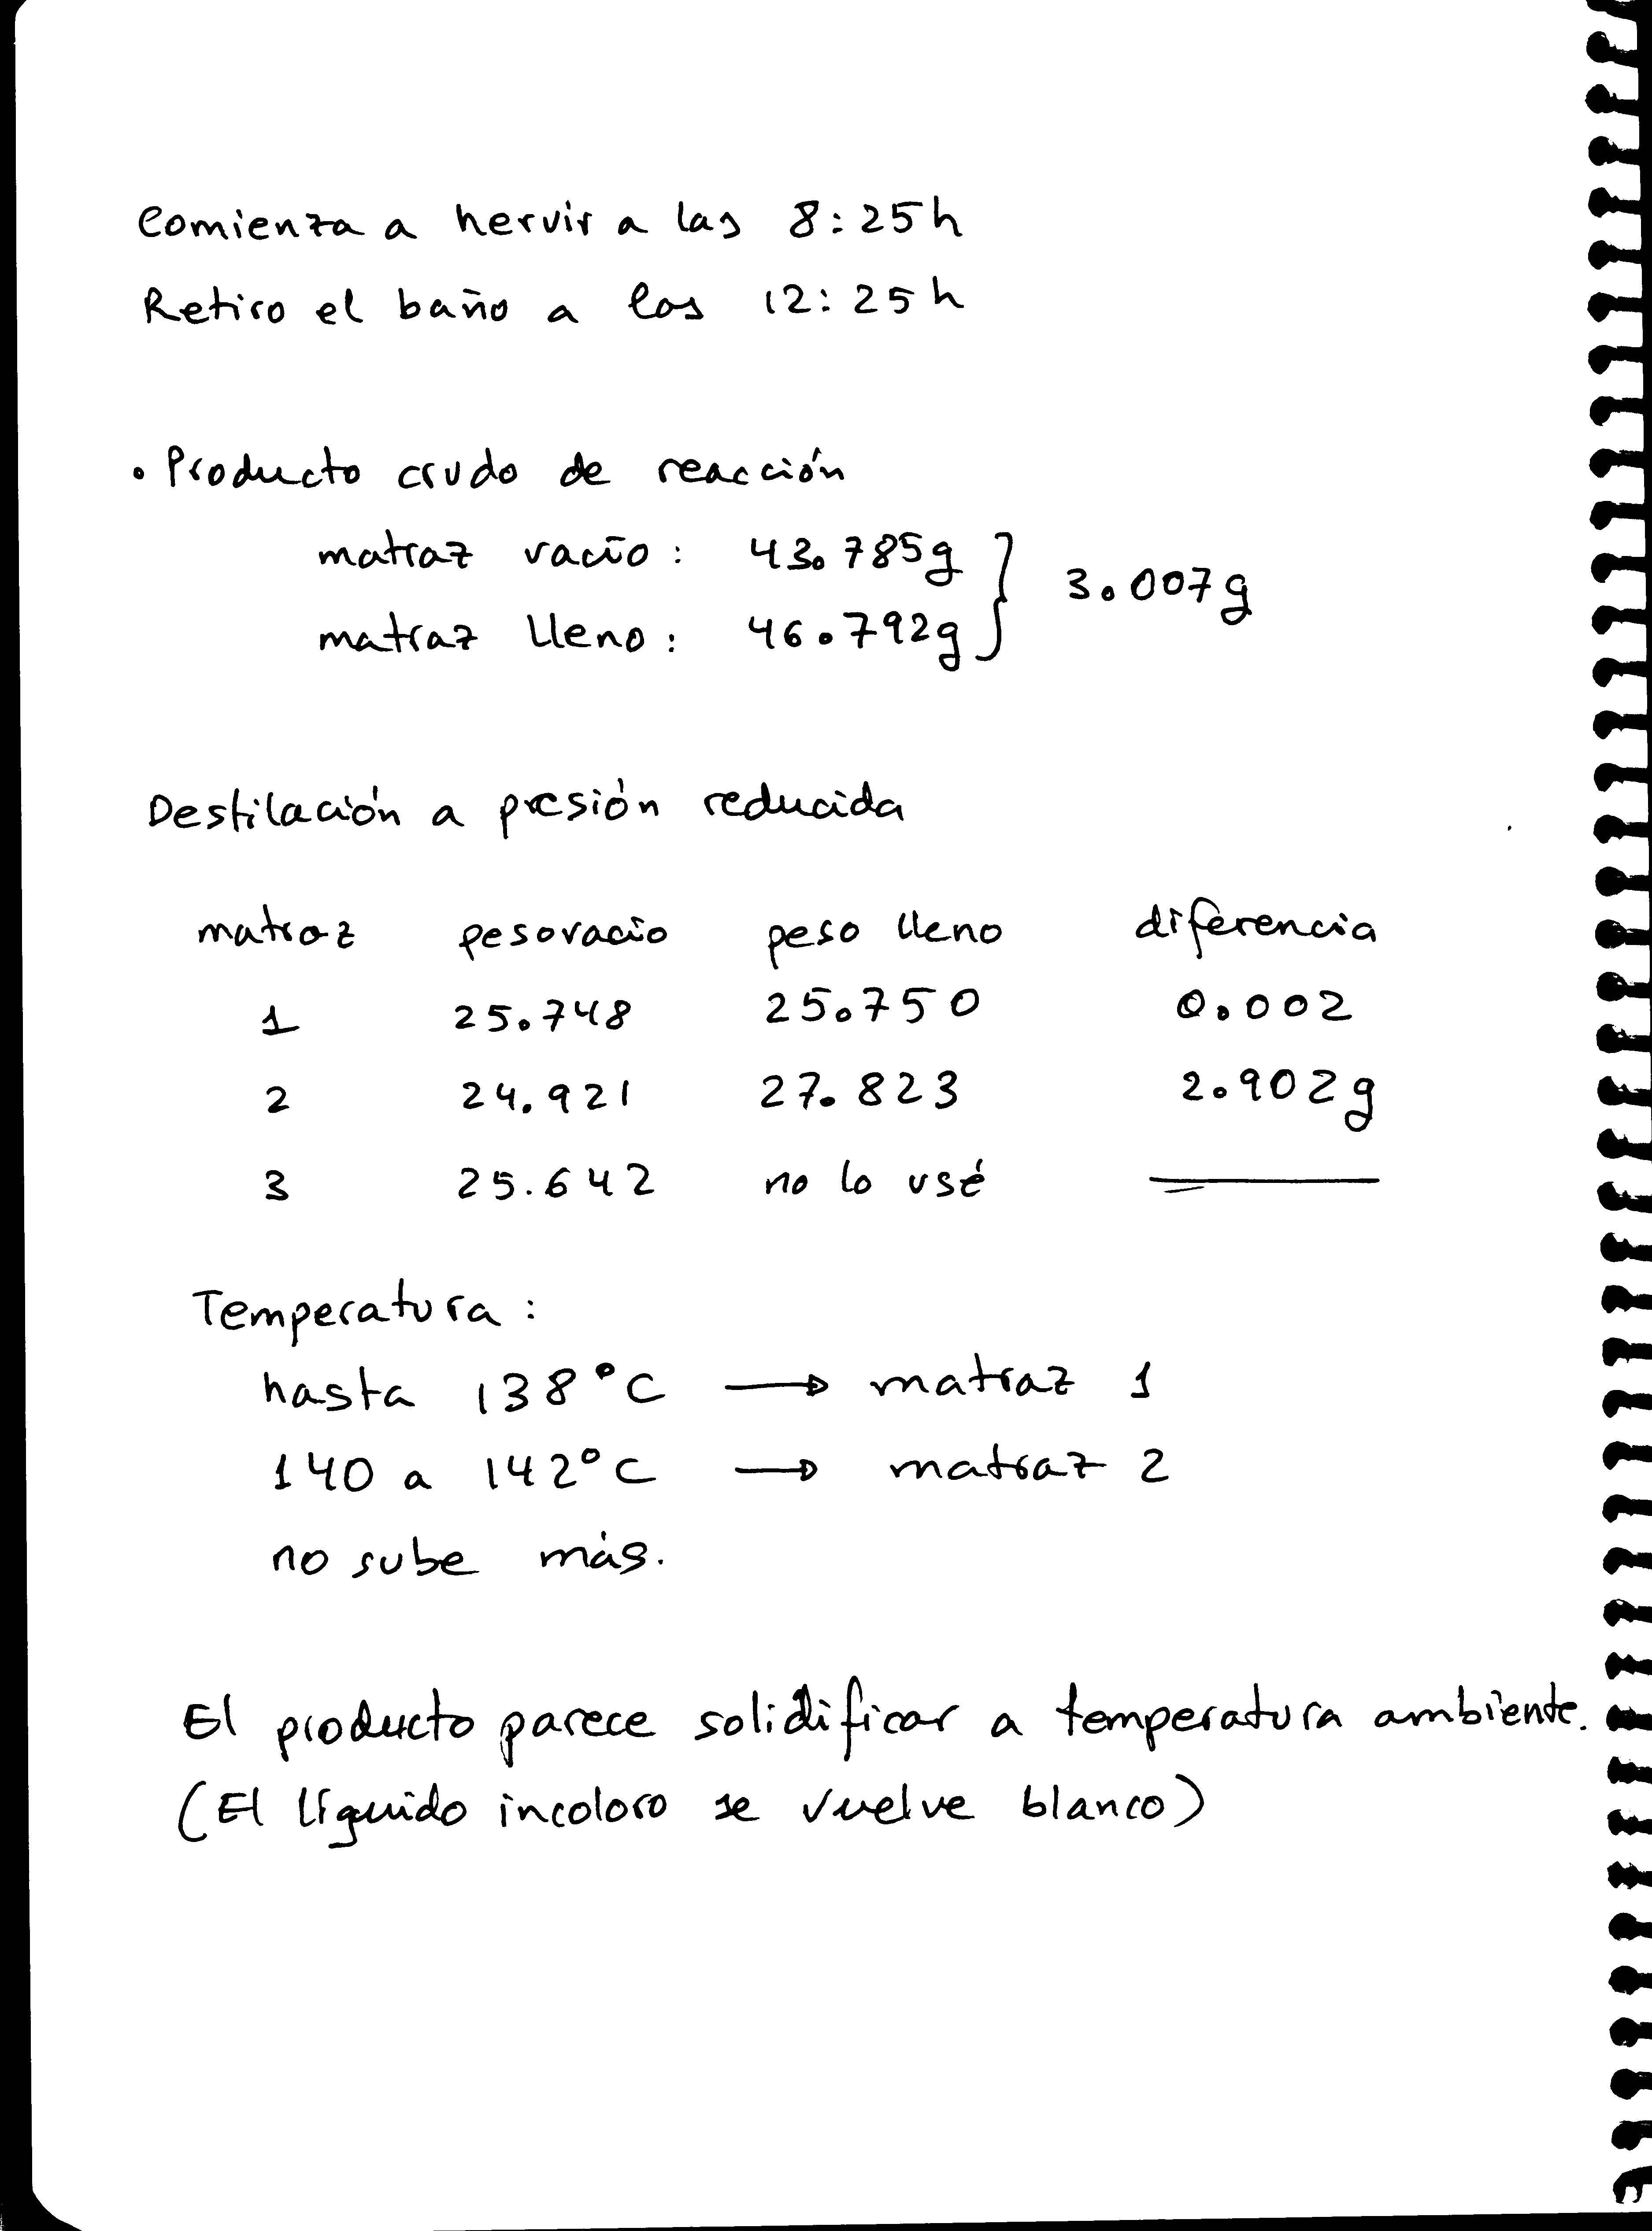 Comienza a hervir a las 8:25h
Retiro el baño a las 12:25h
• Producto crudo de reacción
matraz vacío: 43.785g
3.007g
matraz lleno: 46.792g
Destilación a presión reducida
matraz peso vacío peso lleno diferencia
1 25.748 25.750 0.002
2 24.921 27.823 2.902g
3 25.642 no lo usé —
Temperatura:
hasta 138°C → matraz 1
140 a 142°C → matraz 2
no sube más.
El producto parece solidificar a temperatura ambiente.
(El líquido incoloro se vuelve blanco)